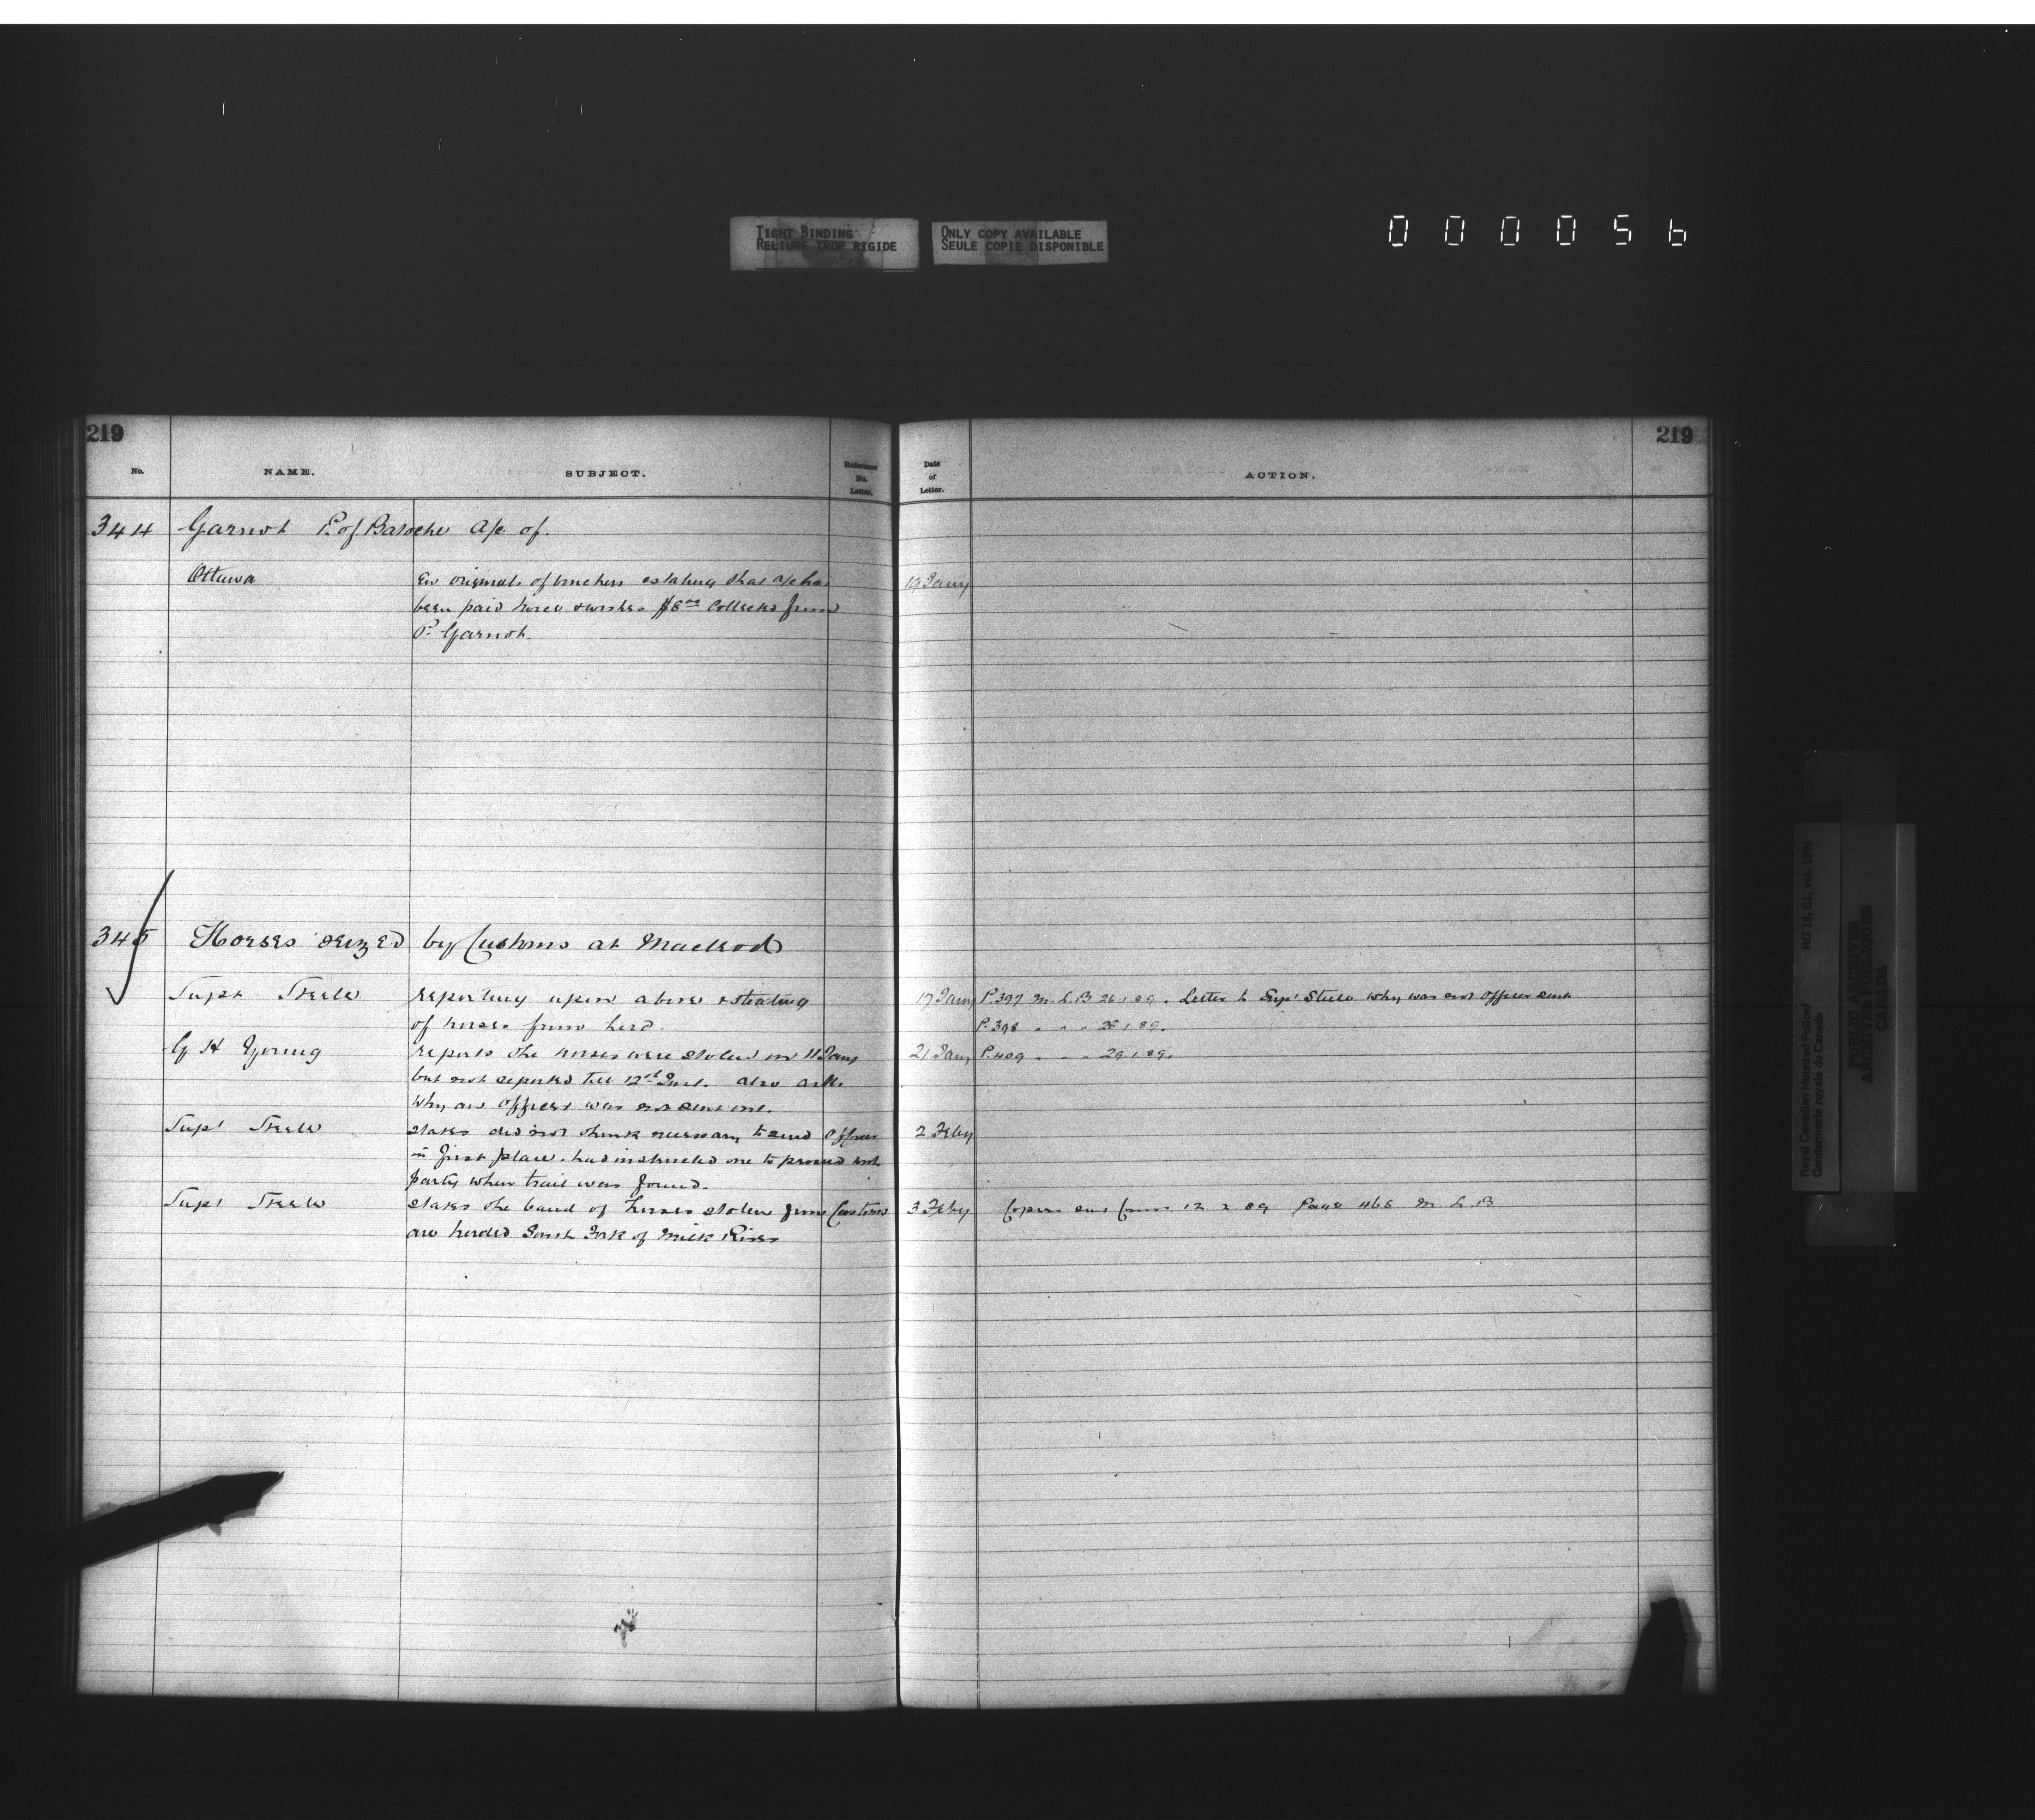 TIGHT BINDING
RELIURE TROP RIGIDE
ONLY COPY AVAILABLE
SEULE COPIE DISPONIBLE
000056
219
No. NAME. SUBJECT. Reference No. Letter.
344 Garnot P. of Batoche a/c of.
Ottawa En originals of vouchers & stating that a/c has
been paid twice & wishes $8.00 collected from
P. Garnot.
345 Horses seized by Customs at Macleod
Supt Steele reporting upon above & stealing
of horses from herd.
G H Young reports the horses were stolen on 11 Jany
but not reported till 12th Inst. also asks
why an officer was not sent out.
Supt Steele states did not think necessary to send Officer
in first place. had instructed one to proceed with
party when trail was found.
Supt Steele states the band of horses stolen from Customs
are herded South Fork of Milk River
219
Date of Letter. ACTION.
19 Jany
17 Jany P. 397 M. L. B 26.1.89. Letter to Supt Steele why was not officer sent
P. 398 " " " 28.1.89.
21 Jany P. 409 " " " 29.1.89.
2 Feby
3 Feby Copies sent 12 2 89 Page 468 M. L. B
Royal Canadian Mounted Police/ RG 18, B1, vol. 1996
Gendarmerie royale du Canada
PUBLIC ARCHIVES
ARCHIVES PUBLIQUES
CANADA